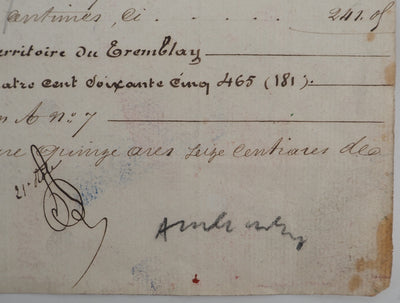 centimes, Ci . . . . . 241.05
erritoire du Tremblay
uatre Cent Soixante Cinq 465 (181).
A n° 7
quinze ares seize centiares de